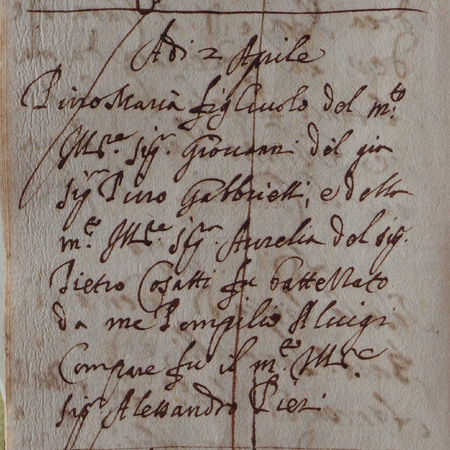 Adi 2 Aprile
Pirro Maria figliuolo del m.to
Ill.re sig.r Giovanni del gia
sig.r Pirro Gabbrielli, e della
m.to Ill.re sig.ra Aurelia del sig.
Pietro Cosatti fu battezzato
da me Pompilio Aluigi
Compare fu il m.to Ill.re
sig.re Alessandro Pieri